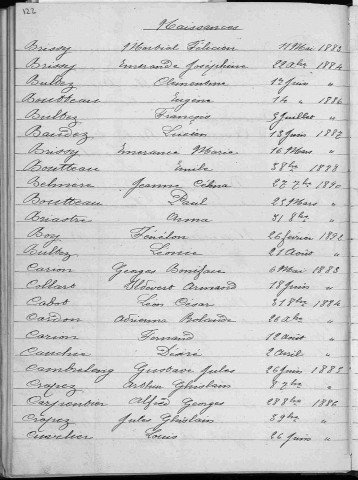 122
Naissances
Brissy Martial Félicien 11 Mai 1883
Brissy Emerande Joséphine 22 1884
Bultez Clémentine 1er Juin "
Boutteau Eugène 14 " 1886
Bultez François 3 Juillet "
Baudez Lucien 13 Juin 1882
Brissy Emerance Marie 16 Mars "
Boutteau Emile 3 8bre 1888
Jeanne Célina 27 7bre 1890
Boutteau Paul 23 Mars "
Briastre Anna 31 8bre "
Boy Fénélon 26 février 1892
Bultez Léonie 21 Août "
Carion Georges Boniface 6 Mai 1883
Collart Armand 18 Juin "
Cadot Léon César 31 8bre 1884
Cardon Adrienne 20 "
Carion Fernand 12 Août "
Désiré 2 Avril "
Gustave Jules 26 Juin 1885
Crapez Arthur Ghislain 8 7bre "
Carpentier Alfred Georges 28 8bre 1886
Crapez Jules Ghislain 3 9bre "
Cuvelier Louis 26 Juin "